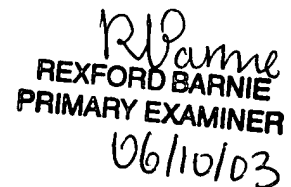 RBarnie
REXFORD BARNIE
PRIMARY EXAMINER
06/10/03